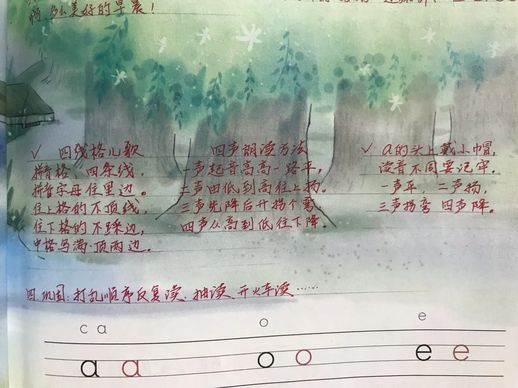 啊,多么美好的早晨!
✓ 四线格儿歌
拼音格 四条线,
拼音字母住里边。
住上格的不顶线,
住下格的不踩边,
中格写满顶两边。
四声调读方法
一声起音高高一路平,
二声由低到高往上扬,
三声先降后升拐个弯,
四声从高到低往下降。
✓ a的头上戴小帽,
读音不同要记牢,
一声平, 二声扬,
三声拐弯 四声降。
四.巩固:打乱顺序反复读、抽读、开火车读……
c a
o
e
a a
o o
e e